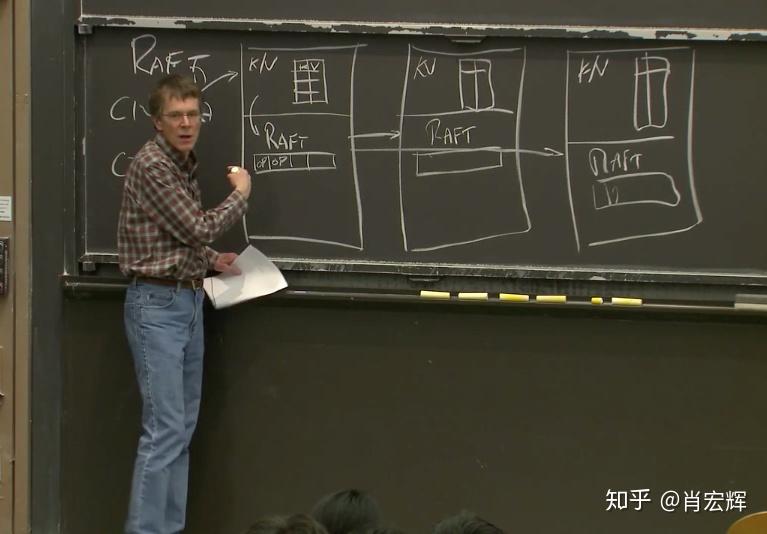 RAFT
KV
RAFT
OP OP
KV
RAFT
KV
RAFT
知乎 @肖宏辉